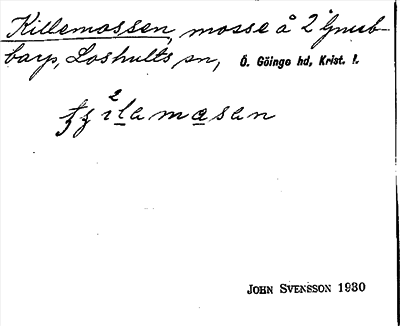 Killemossen, mosse å 2 Gnub-
barp, Loshults sn, Ö. Göinge hd, Krist. l.
JOHN SVENSSON 1930